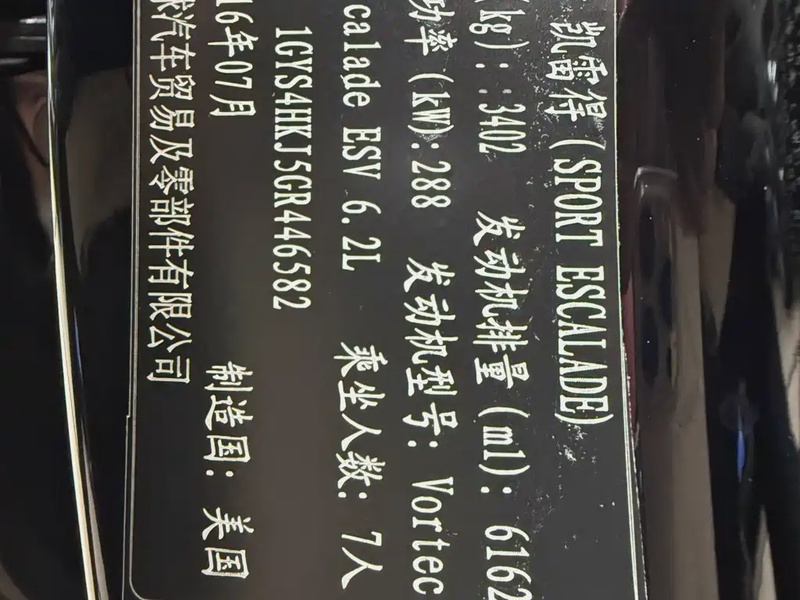 凯雷得 (SPORT ESCALADE)
(kg): 3402 发动机排量 (ml): 6162
功率 (kW): 288 发动机型号: Vortec
calade ESV 6.2L 乘坐人数: 7人
1GYS4HKJ5GR446582
16年07月 制造国: 美国
汽车贸易及零部件有限公司